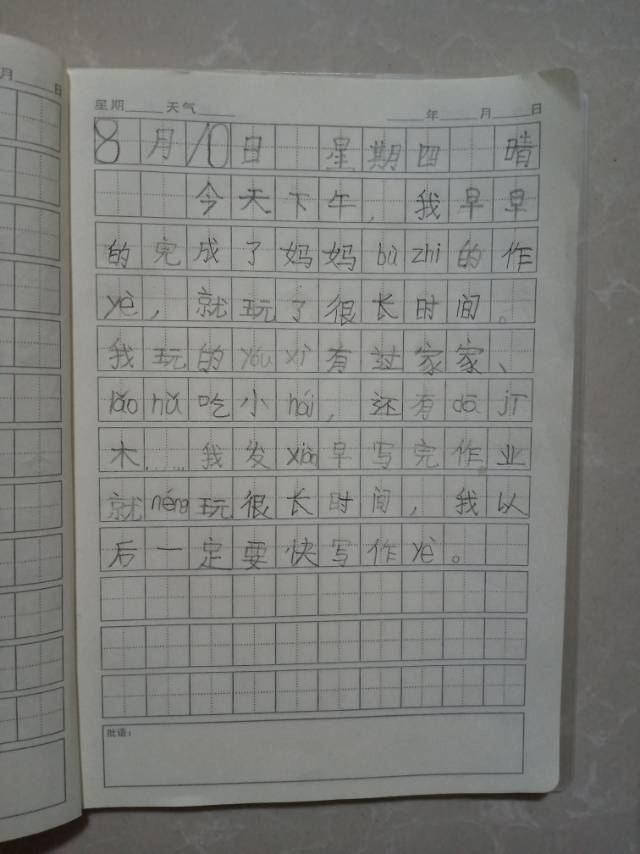 月 日
星期 天气 年 月 日
8月10日 星期四 晴
今天下午，我早早
的完成了妈妈bù zhì的作
yè，就玩了很长时间。
我玩的yóu xì有过家家、
lǎo hǔ吃小hái，还有dā jī
木……我发xiàn早写完作业
就néng玩很长时间，我以
后一定要快写作yè。
批语：